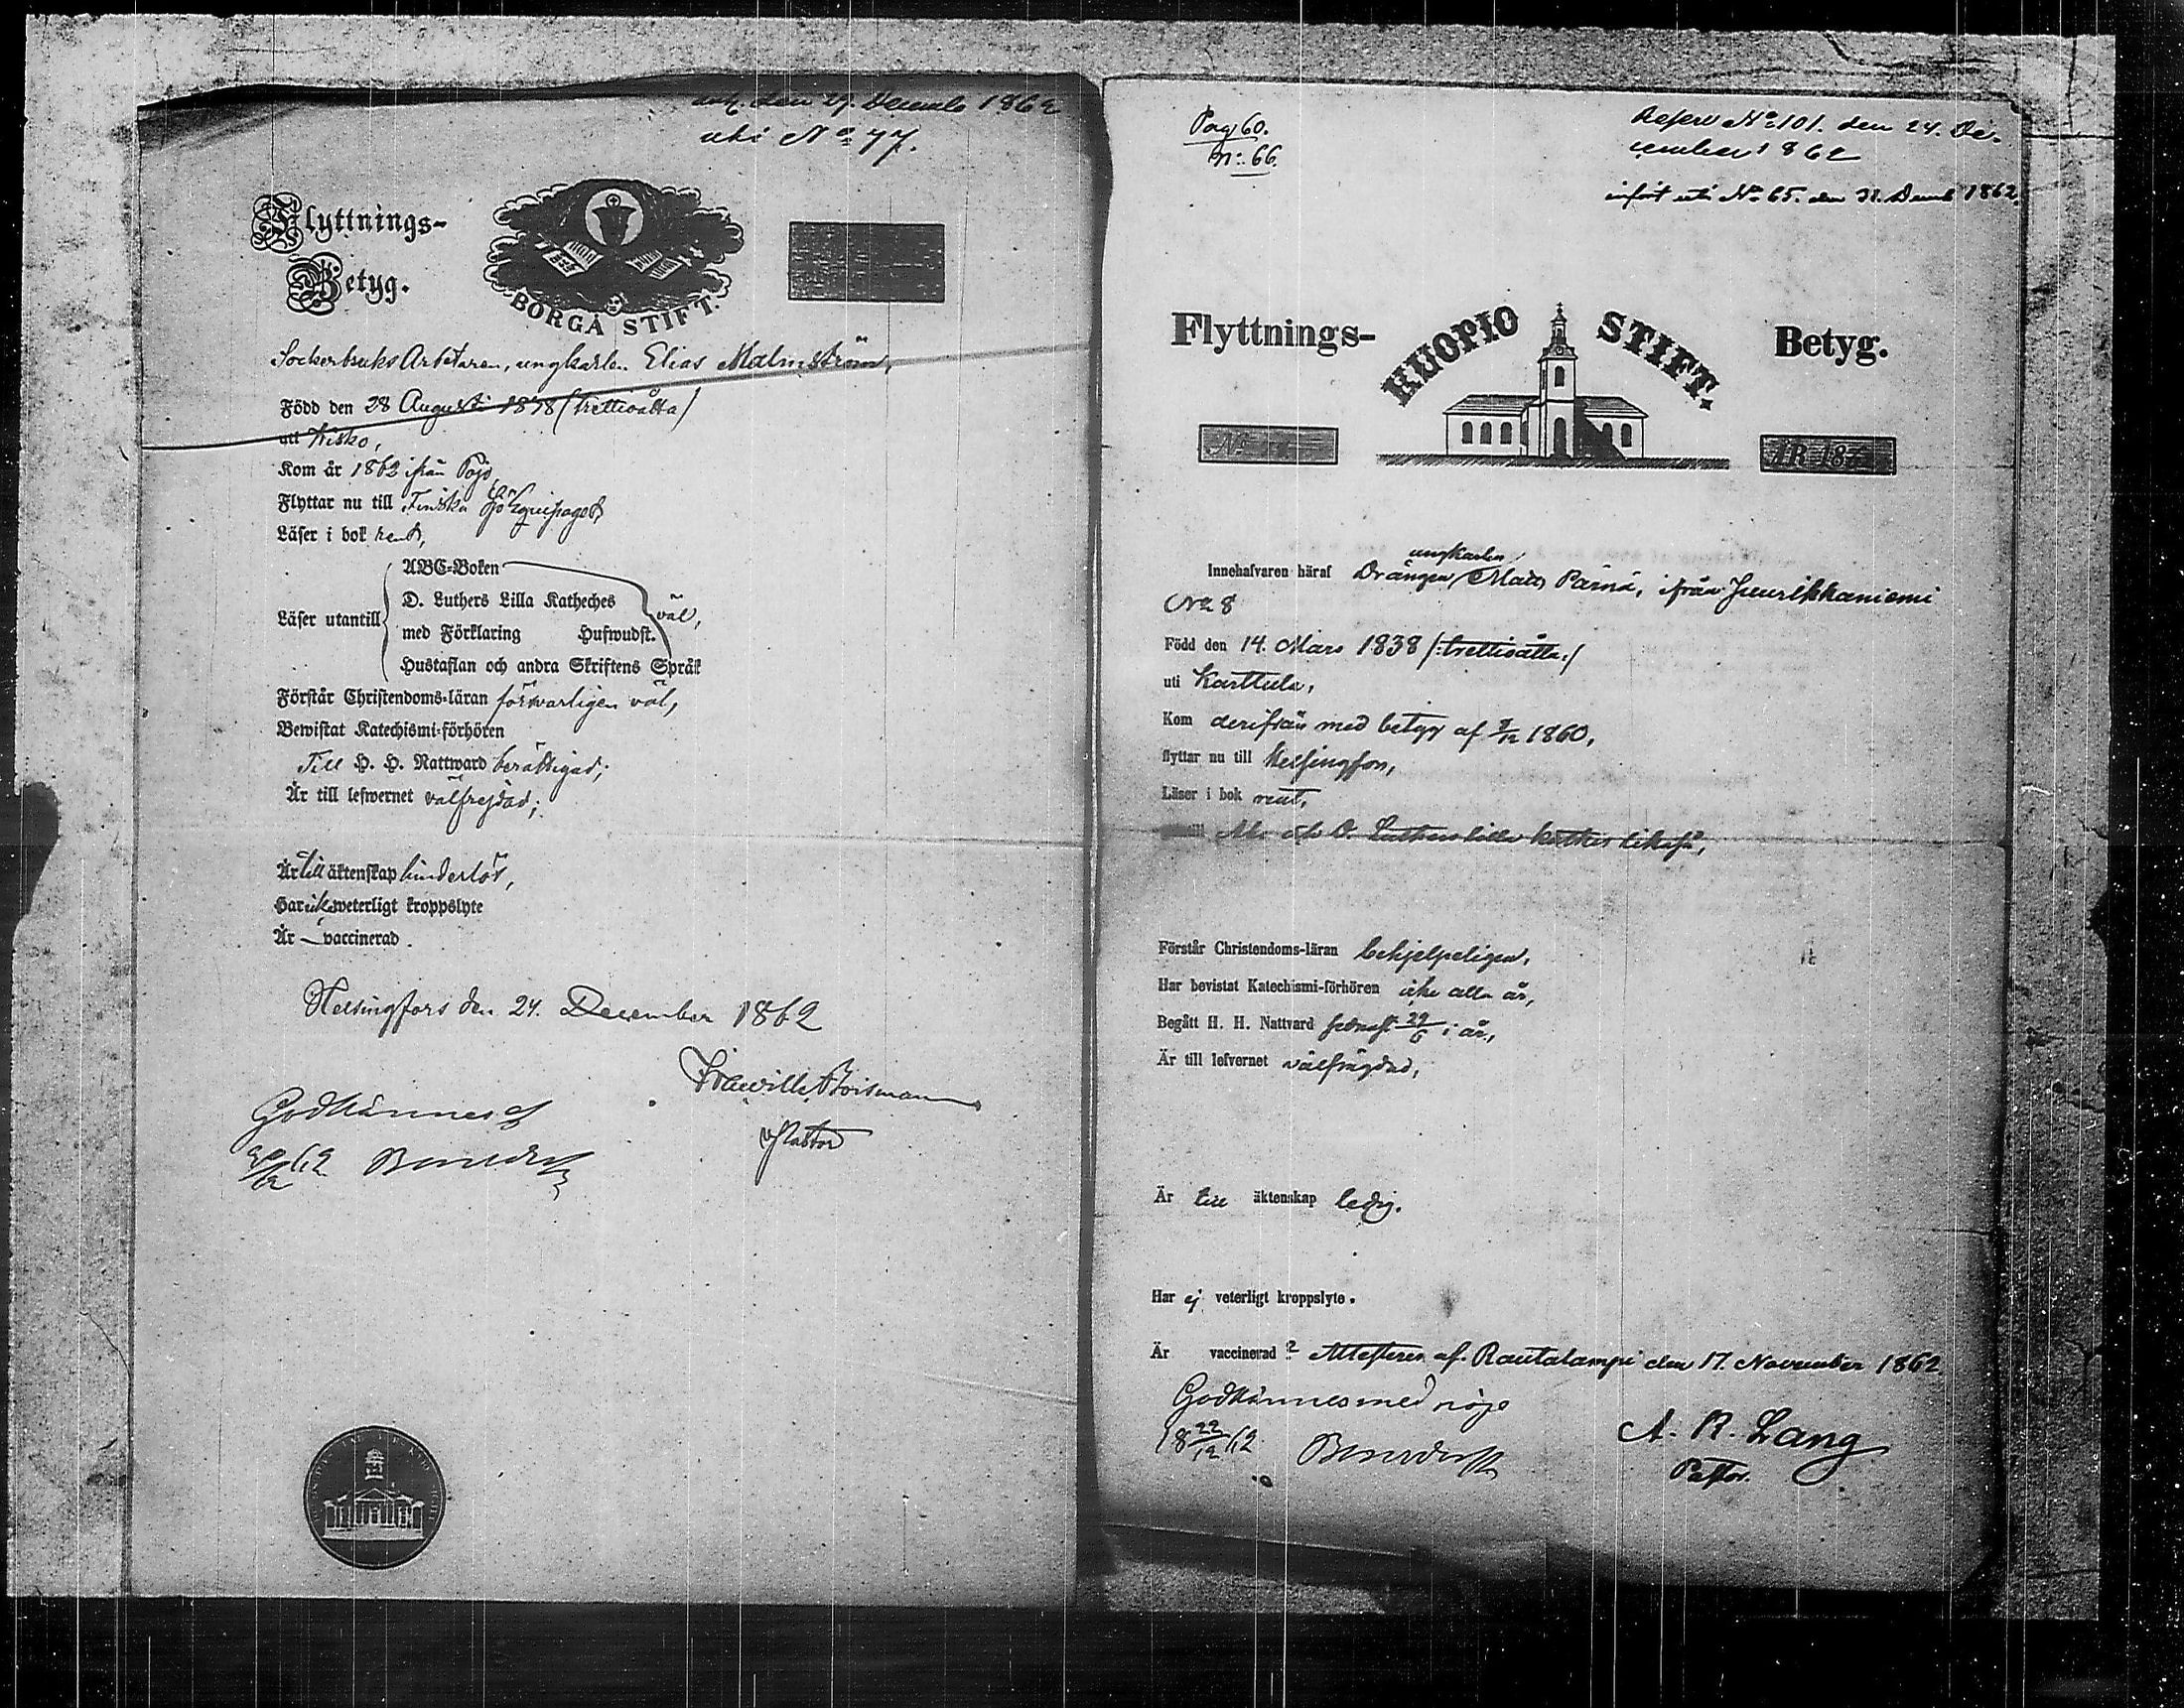 den 29. Decemb 1862
uti No 77.
Flyttnings-
Betyg.
BORGÅ STIFT.
Sockerbruks Arbetaren, ungkarlen Elias Malmström,
Född den 28 Augusti 1838 (trettioåtta)
uti Kisko,
Kom år 1862 ifrån Pojo
Flyttar nu till Finska Sjö Equipaget,
Läser i bok rent,
ABC-Boken
D. Luthers Lilla Katheches
Läser utantill
väl,
med Förklaring Hufwudst.
Hustaflan och andra Skriftens Språk
Förstår Christendoms-läran försvarligen väl,
Bewistat Katechismi-förhören
Till H. H. Nattward berättigad;
Är till lefwernet välfrejdad;
Är till äktenskap hinderlös,
Har icke weterligt kroppslyte
Är vaccinerad.
Helsingfors den 24. December 1862
Boisman
v Pastor
Godkännes
Pag 60.
No: 66.
Reserv No 101. den 24. De-
cember 1862
infört uti No 65. den 31. Decemb 1862.
Flyttnings-
KUOPIO STIFT.
Betyg.
No
ÅR 187
ungkarlen
Innehafvaren häraf Drängen Mats Pärnä, ifrån Juurikkaniemi
No 8
Född den 14. Mars 1838 (:trettioåtta:)
uti Karttula,
Kom derifrån med betyg af 1860,
flyttar nu till Helsingfors,
Läser i bok rent,
Abc och D. Luthers lilla kathes likaså,
Förstår Christendoms-läran behjelpeligen,
Har bevistat Katechismi-förhören icke alla år,
Begått H. H. Nattvard sednast 29/6 i år,
Är till lefvernet välfrägdad,
Är till äktenskap ledig.
Har ej veterligt kroppslyte.
Är vaccinerad? Attesteras af. Rautalampi den 17. November 1862
Godkännes med nöje
18 22/12 62
A. R. Lang
Pastor.